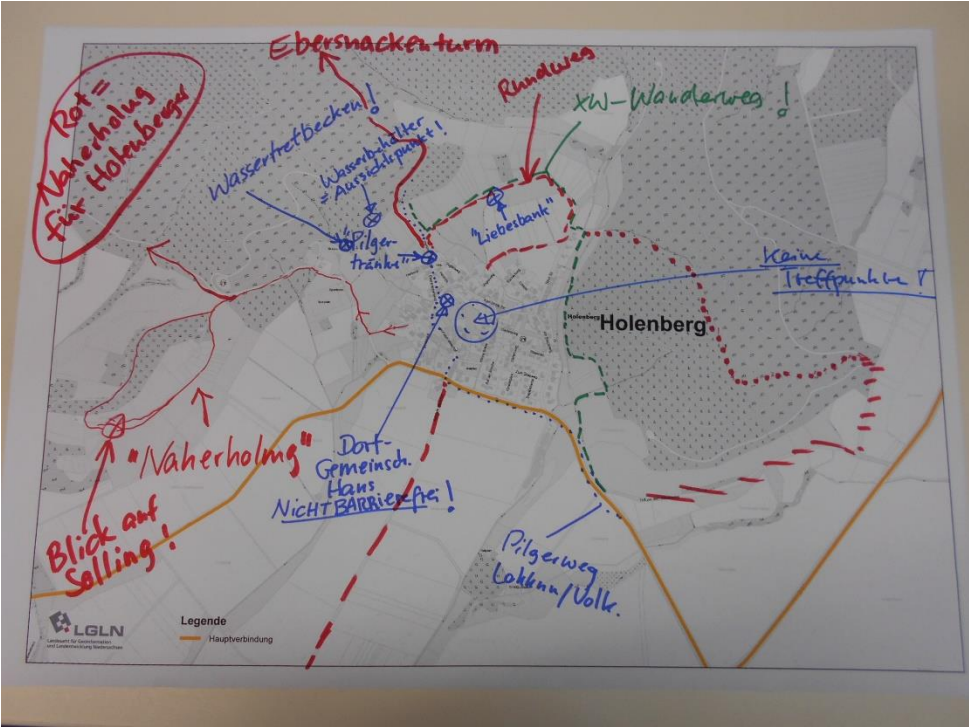 Ebersnackenturm
Rot =
Naherholung
für
Holenberger
Rundweg
XW-Wanderweg!
Wassertretbecken!
Wasserbehälter
= Aussichtspunkt!
"Pilger-
tränke"
"Liebesbank"
Keine
Treffpunkte!
Holenberg
Holenberg
"Naherholung"
Blick auf
Solling!
Dorf-
Gemeinsch.
Haus
NICHT BARRierefrei!
Pilgerweg
Lokkum/Volk.
LGLN
Landesamt für Geoinformation
und Landentwicklung Niedersachsen
Legende
Hauptverbindung